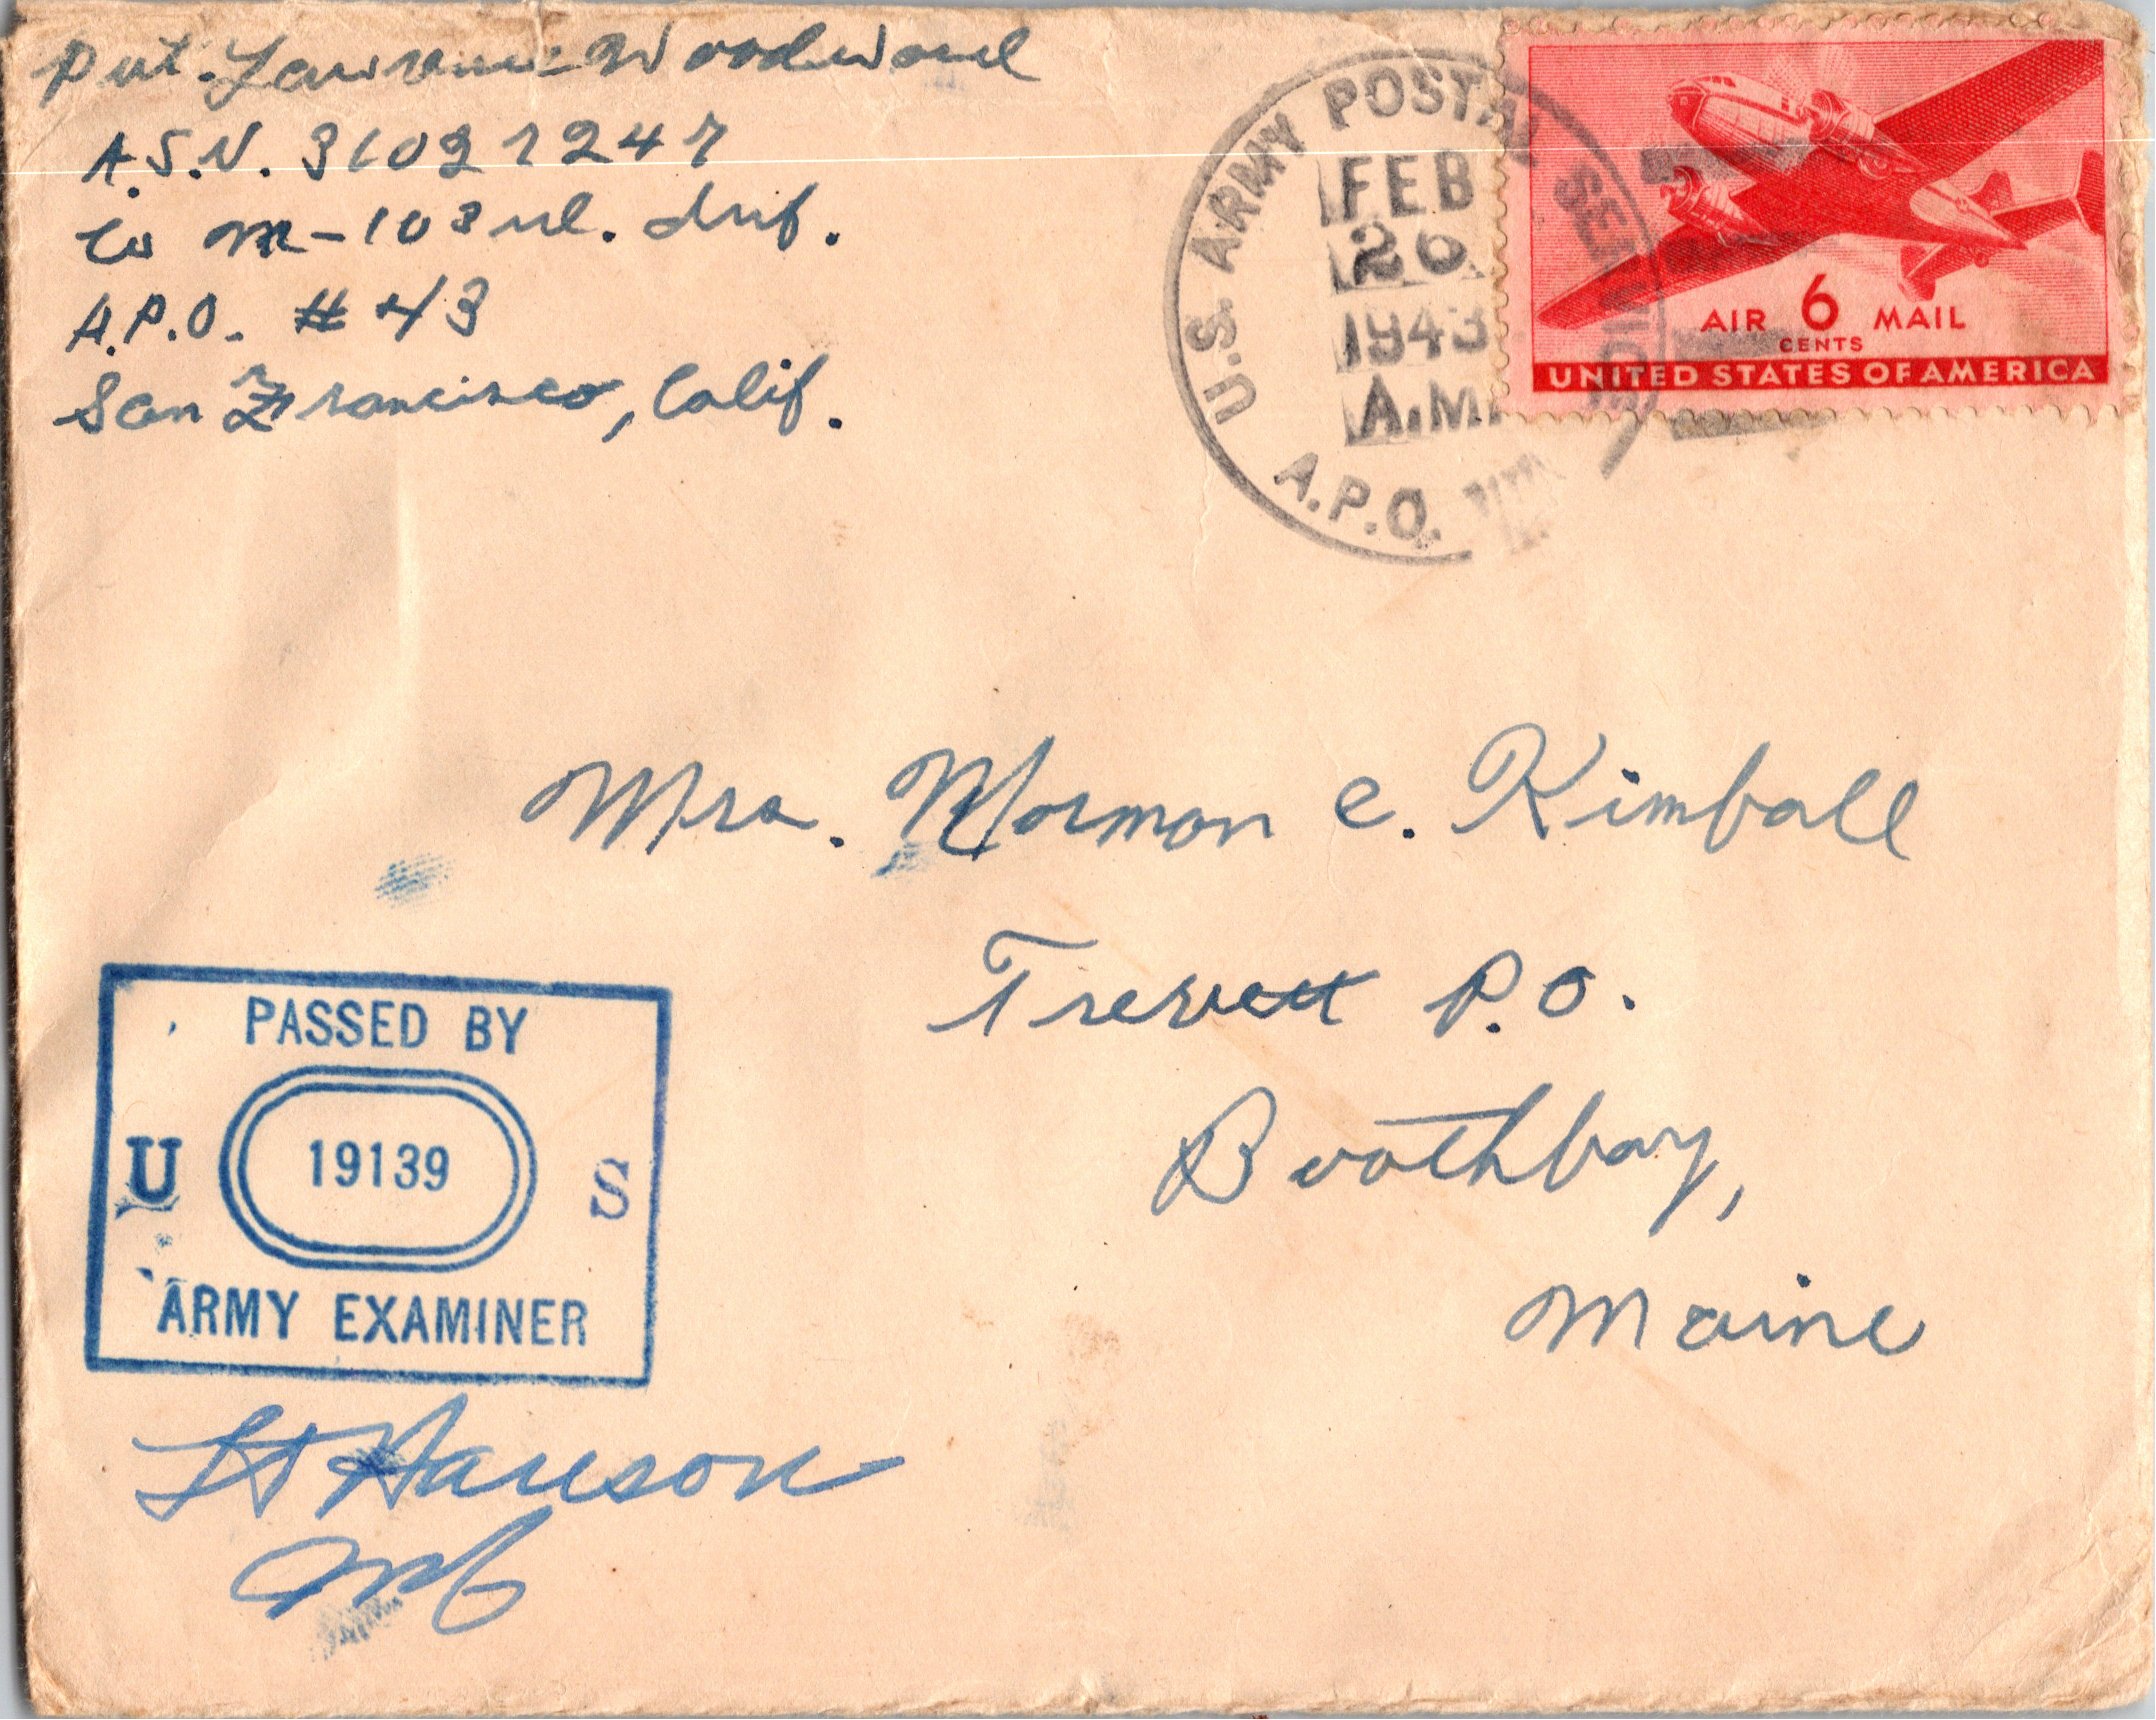 Pvt. Lawrence Woodward
A.S.N. 31027247
Co M-103rd. Inf.
A.P.O. # 43
San Francisco, Calif.
U.S. ARMY POSTAL SERVICE
FEB
26
1943
A.M.
A.P.O.
AIR 6 MAIL
CENTS
UNITED STATES OF AMERICA
Mrs. Norman C. Kimball
Trevett P.O.
Boothbay,
Maine
PASSED BY
U 19139 S
ARMY EXAMINER
Lt Hanson